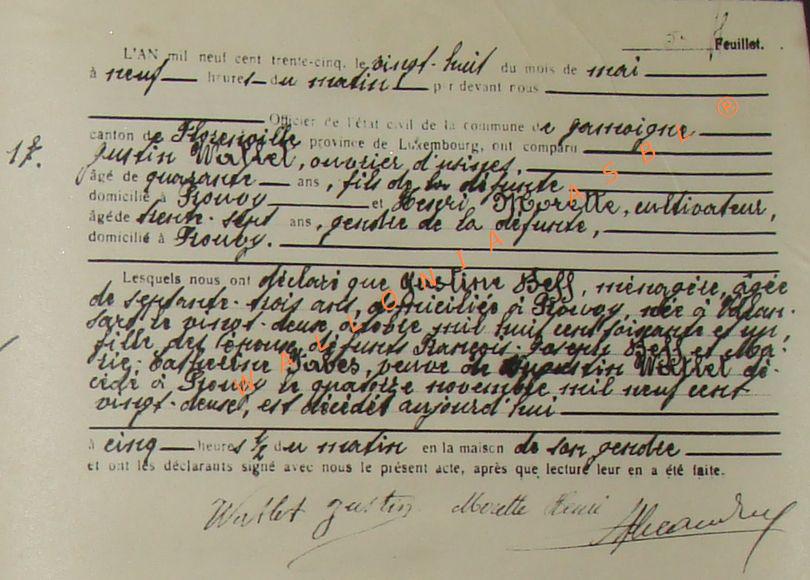 Feuillet.
L'AN mil neuf cent trente-cinq, le vingt-huit du mois de mai
à neuf heures du matin par devant nous
Officier de l'état civil de la commune de Jamoigne
canton de Florenville province de Luxembourg, ont comparu
17. Justin Watlet, ouvrier d'usines,
âgé de quarante ans, fils de la défunte
domicilié à Prouvy et Henri Morette, cultivateur,
âgé de trente-sept ans, gendre de la défunte,
domicilié à Prouvy.
Lesquels nous ont déclaré que Justine Beff, ménagère, âgée
de septante-trois ans, domiciliée à Prouvoy, née à
le vingt-deux octobre mil huit cent soixante et un
fille des époux défunts François-Joseph Beff et Ma-
rie-Catherine veuve de Augustin Watlet dé-
cédé à Prouvy le quatorze novembre mil neuf cent
vingt-deux, est décédée aujourd'hui
à cinq heures ½ du matin en la maison de son gendre
et ont les déclarants signé avec nous le présent acte, après que lecture leur en a été faite.
Watlet Justin Morette Henri
WALLONIA ASBL ®